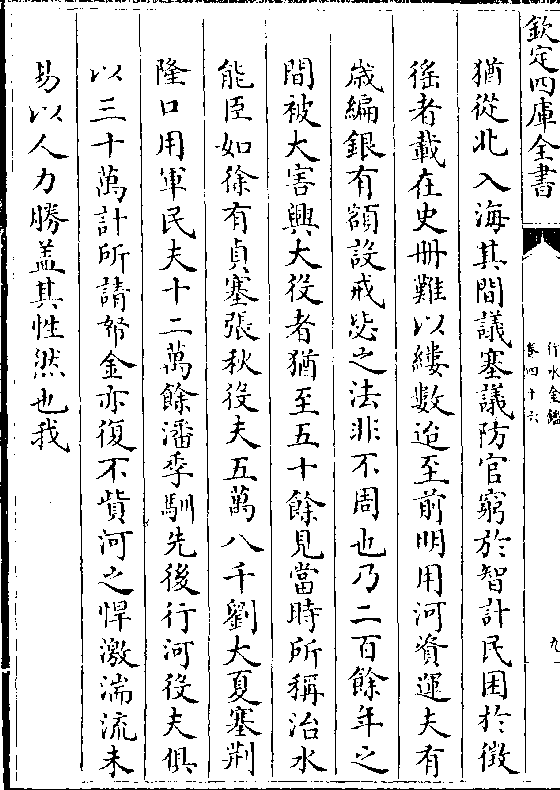 欽定四庫全書
行水金鑑
卷四十六
九
猶從北入海其間議塞議防官窮於智計民困於徵
徭者載在史冊難以縷數迨至前明用河資運夫有
歳編銀有額設戒毖之法非不周也乃二百餘年之
間被大害興大役者猶至五十餘見當時所稱治水
能臣如徐有貞塞張秋役夫五萬八千劉大夏塞荆
隆口用軍民夫十二萬餘潘季馴先後行河役夫俱
以三十萬計所請帑金亦復不貲河之悍激湍流未
易以人力勝盖其性然也我